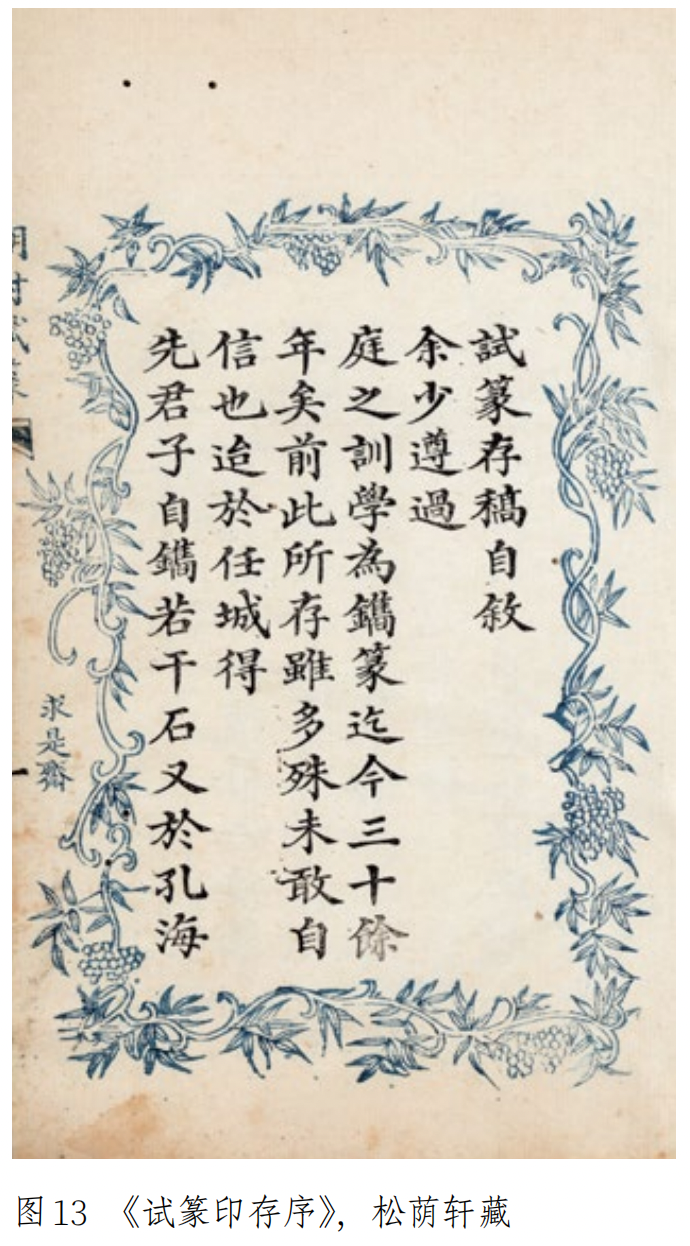 試篆存稿自敘
余少遵過
庭之訓學為鐫篆迄今三十餘
年矣前此所存雖多殊未敢自
信也迨於任城得
先君子自鐫若干石又於孔海
求是齋
图13 《试篆印存序》，松荫轩藏